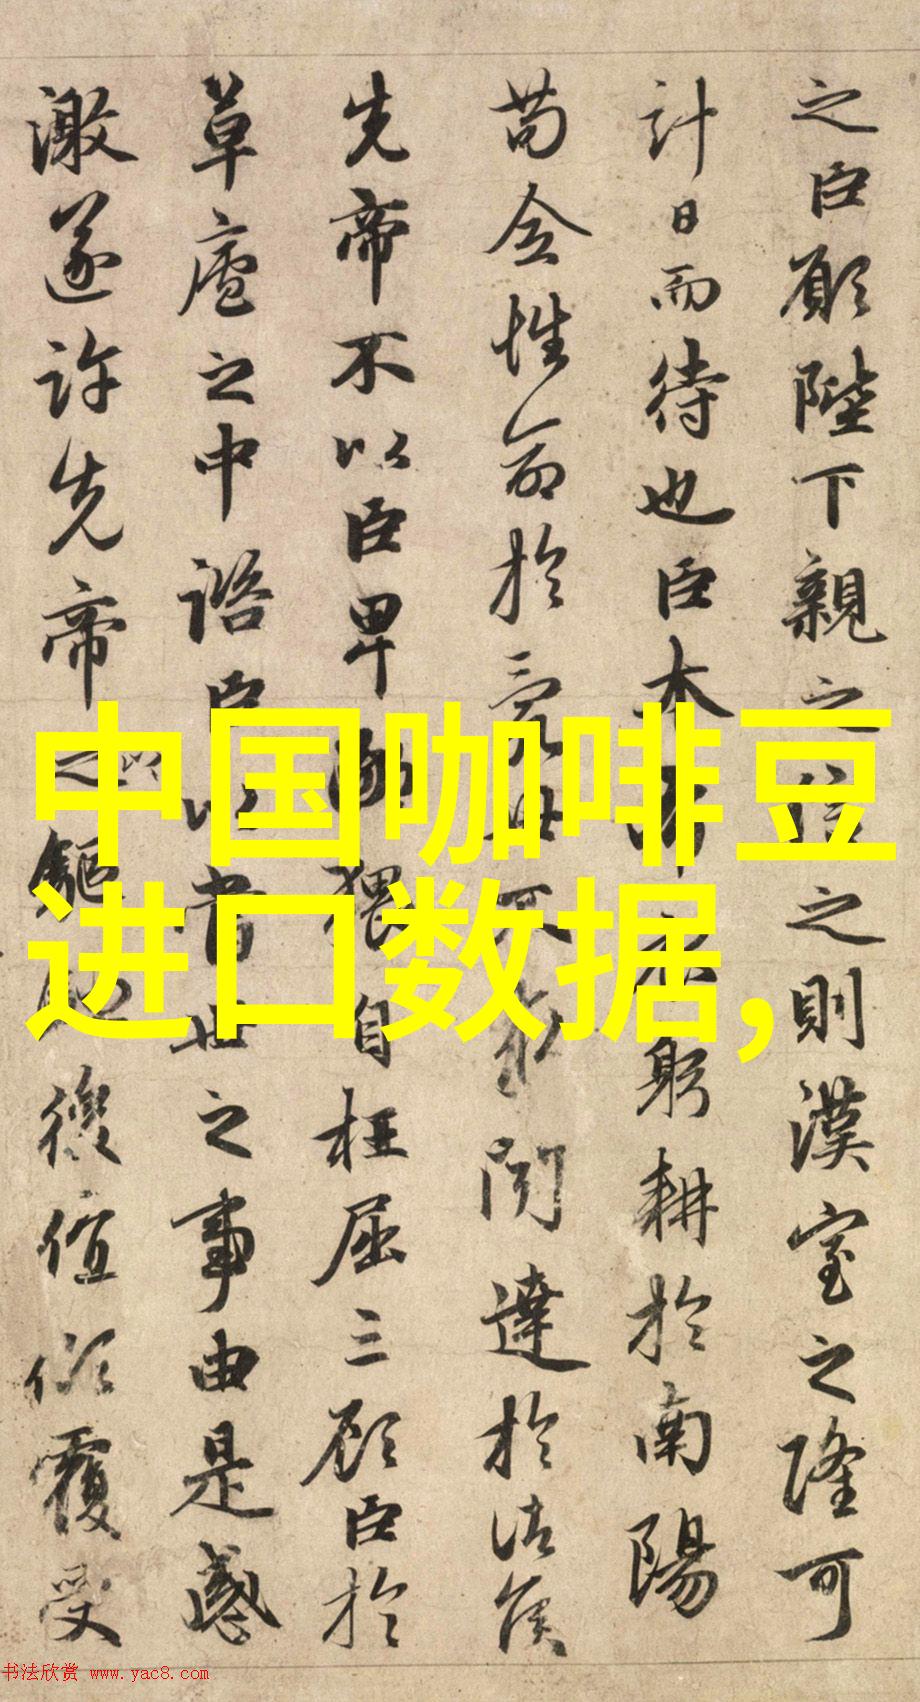 之臣願陛下親之信之則漢室之隆可
計日而待也臣本布衣躬耕於南陽
苟全性命於亂世不求聞達於諸侯
先帝不以臣卑鄙猥自枉屈三顧臣於
草廬之中諮臣以當世之事由是感
激遂許先帝之以驅馳後值傾覆受
中国咖啡豆
进口数据,
书法欣赏 www.yac8.com